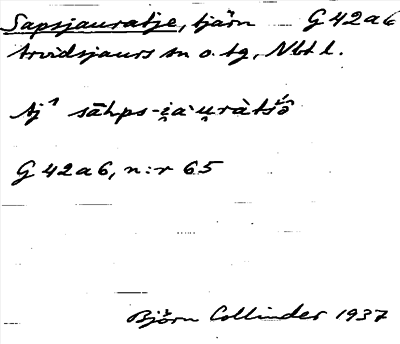 Sapsjauratje, tjärn G 42 a 6
Arvidsjaurs sn o. tg, Nbt l.
Aj¹ sāhps-i̯a·u̯ràtśo̊̄
G 42 a 6, n:r 65
Björn Collinder 1937